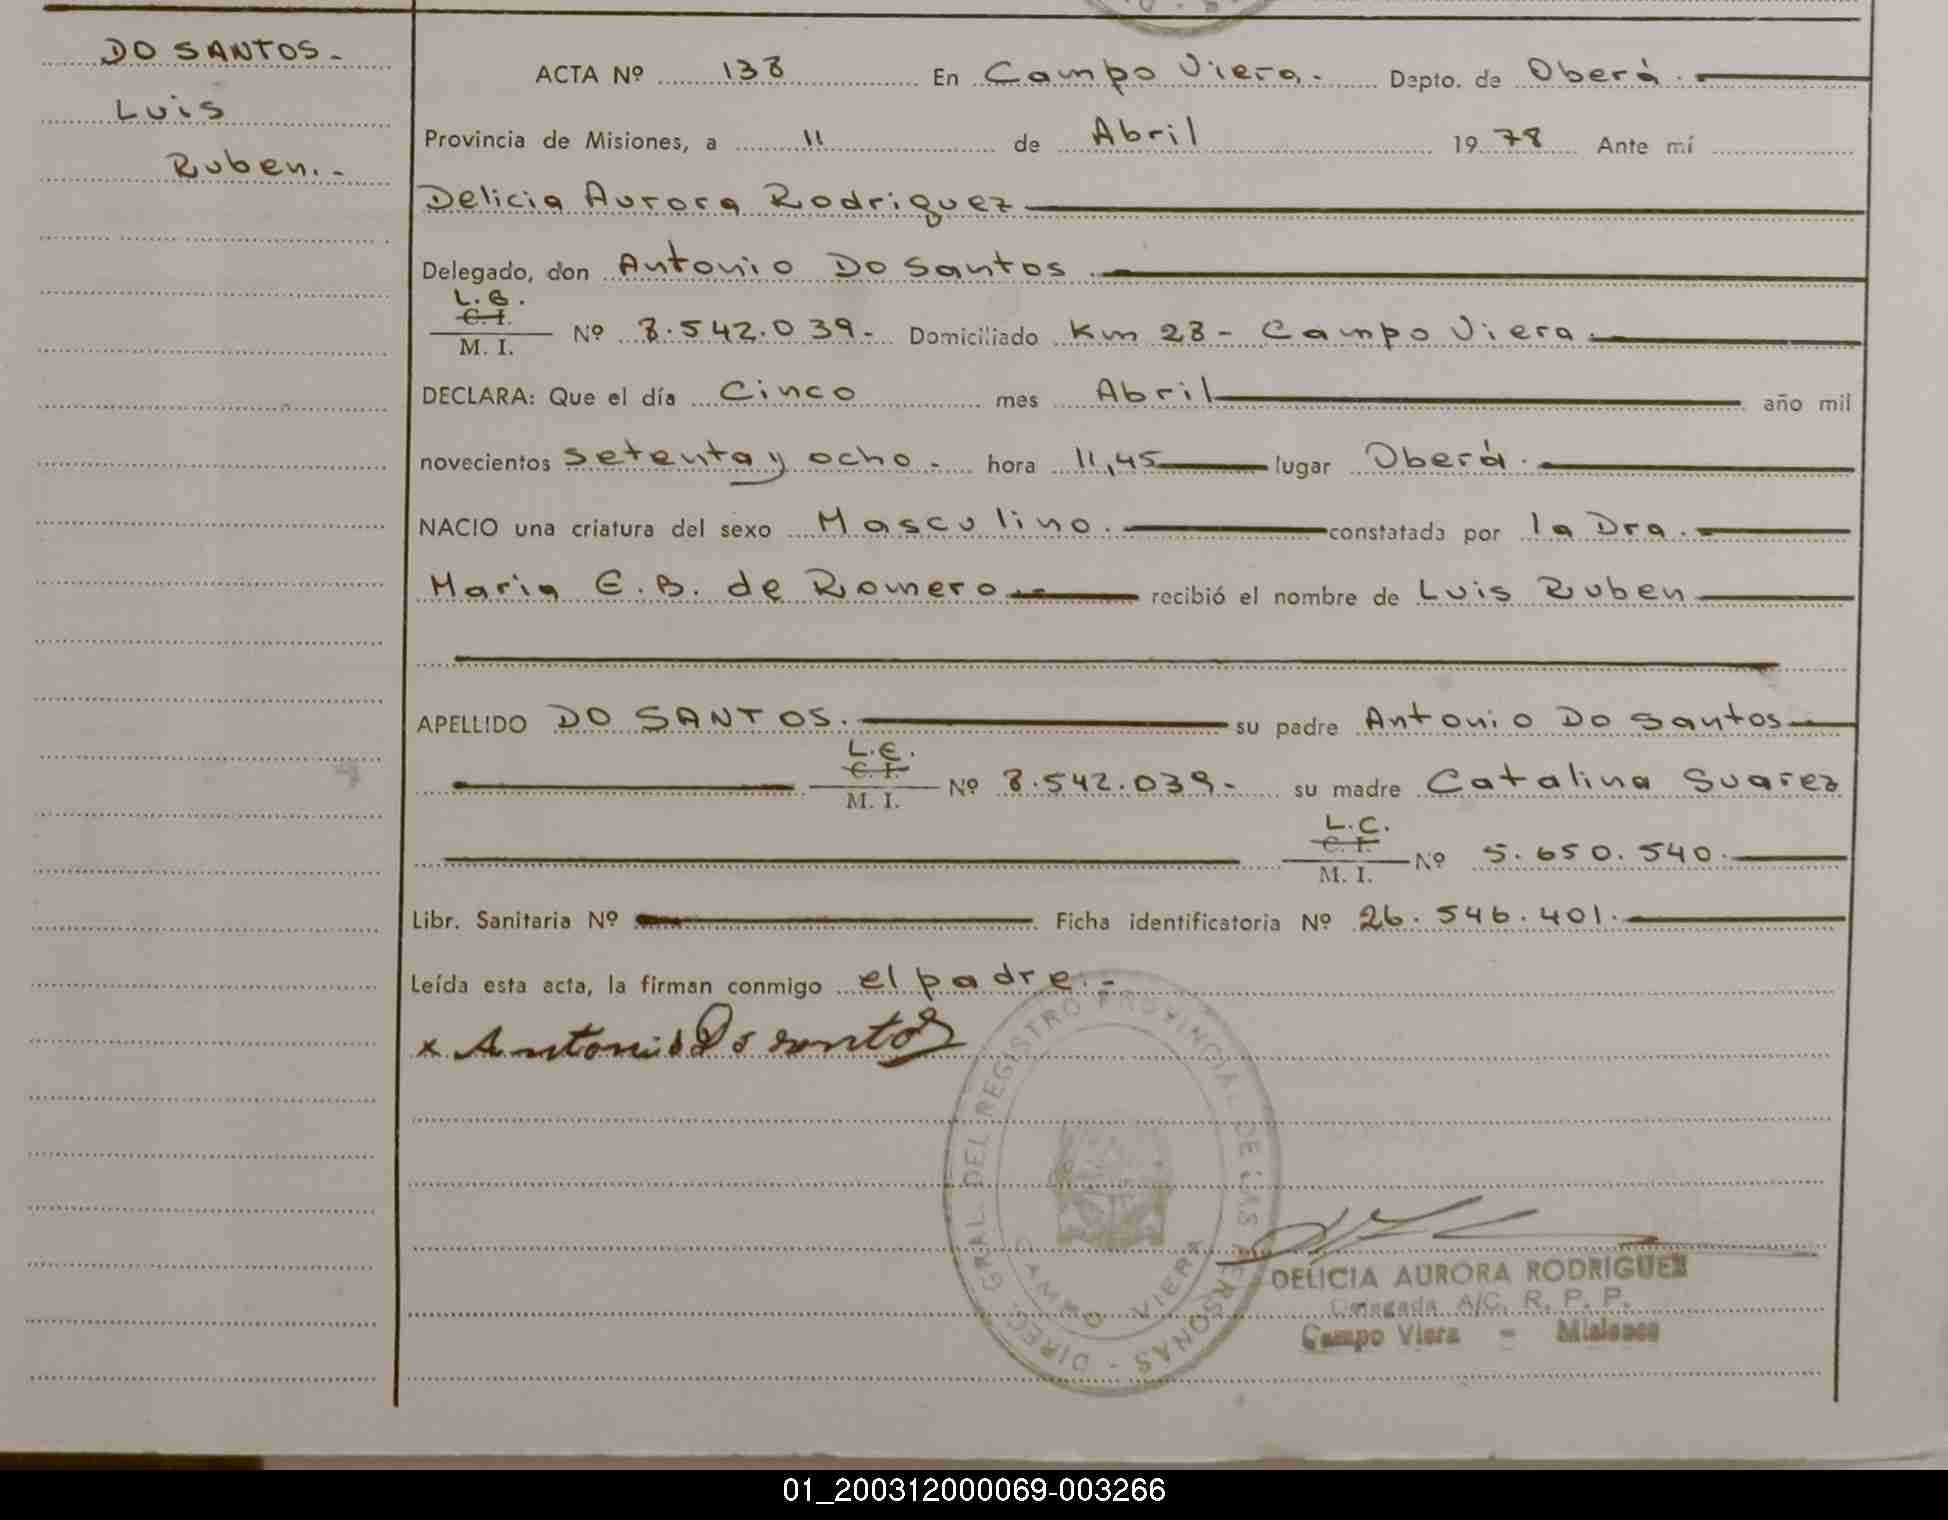 DO SANTOS.-
Luis
Ruben.-
ACTA Nº 138 En Campo Viera.- Depto. de Oberá.-
Provincia de Misiones, a 11 de Abril 1978 Ante mí
Delicia Aurora Rodriguez
Delegado, don Antonio Do Santos.-
L.E.
C. I.
M. I. Nº 8.542.039.- Domiciliado Km 28 - Campo Viera.-
DECLARA: Que el día Cinco mes Abril año mil
novecientos setenta y ocho.- hora 11,45 lugar Oberá.-
NACIO una criatura del sexo Masculino.- constatada por la Dra.-
Maria E.B. de Romero.- recibió el nombre de Luis Ruben
APELLIDO DO SANTOS.- su padre Antonio Do Santos
L.E.
C. I.
M. I. Nº 8.542.039.- su madre Catalina Suarez
L.C.
C. I.
M. I. Nº 5.650.540.-
Libr. Sanitaria Nº Ficha identificatoria Nº 26.546.401.-
Leída esta acta, la firman conmigo el padre.-
x Antonio Do santos
DIREC. GRAL. DEL REGISTRO PROVINCIAL DE LAS PERSONAS -
CAMPO VIERA
DELICIA AURORA RODRIGUEZ
Delegada A/C. R. P. P.
Campo Viera - Misiones
01_200312000069-003266